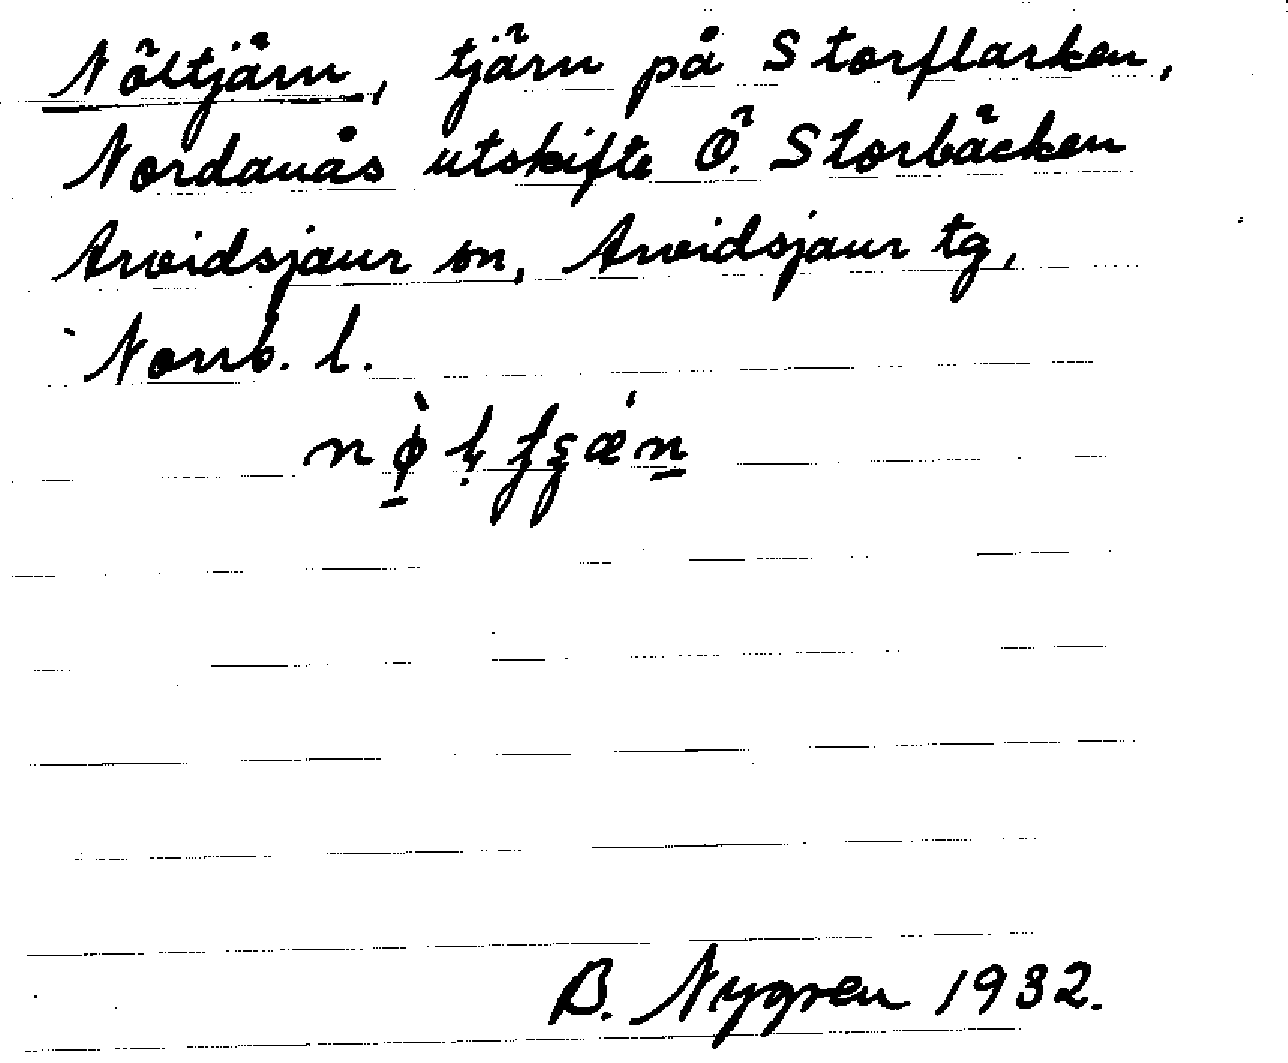 Nöltjärn, tjärn på Storflarken,
Nordanås utskifte Ö. Storbäcken
Arvidsjaur sn, Arvidsjaur tg,
Norrb. l.
B. Nygren 1932.